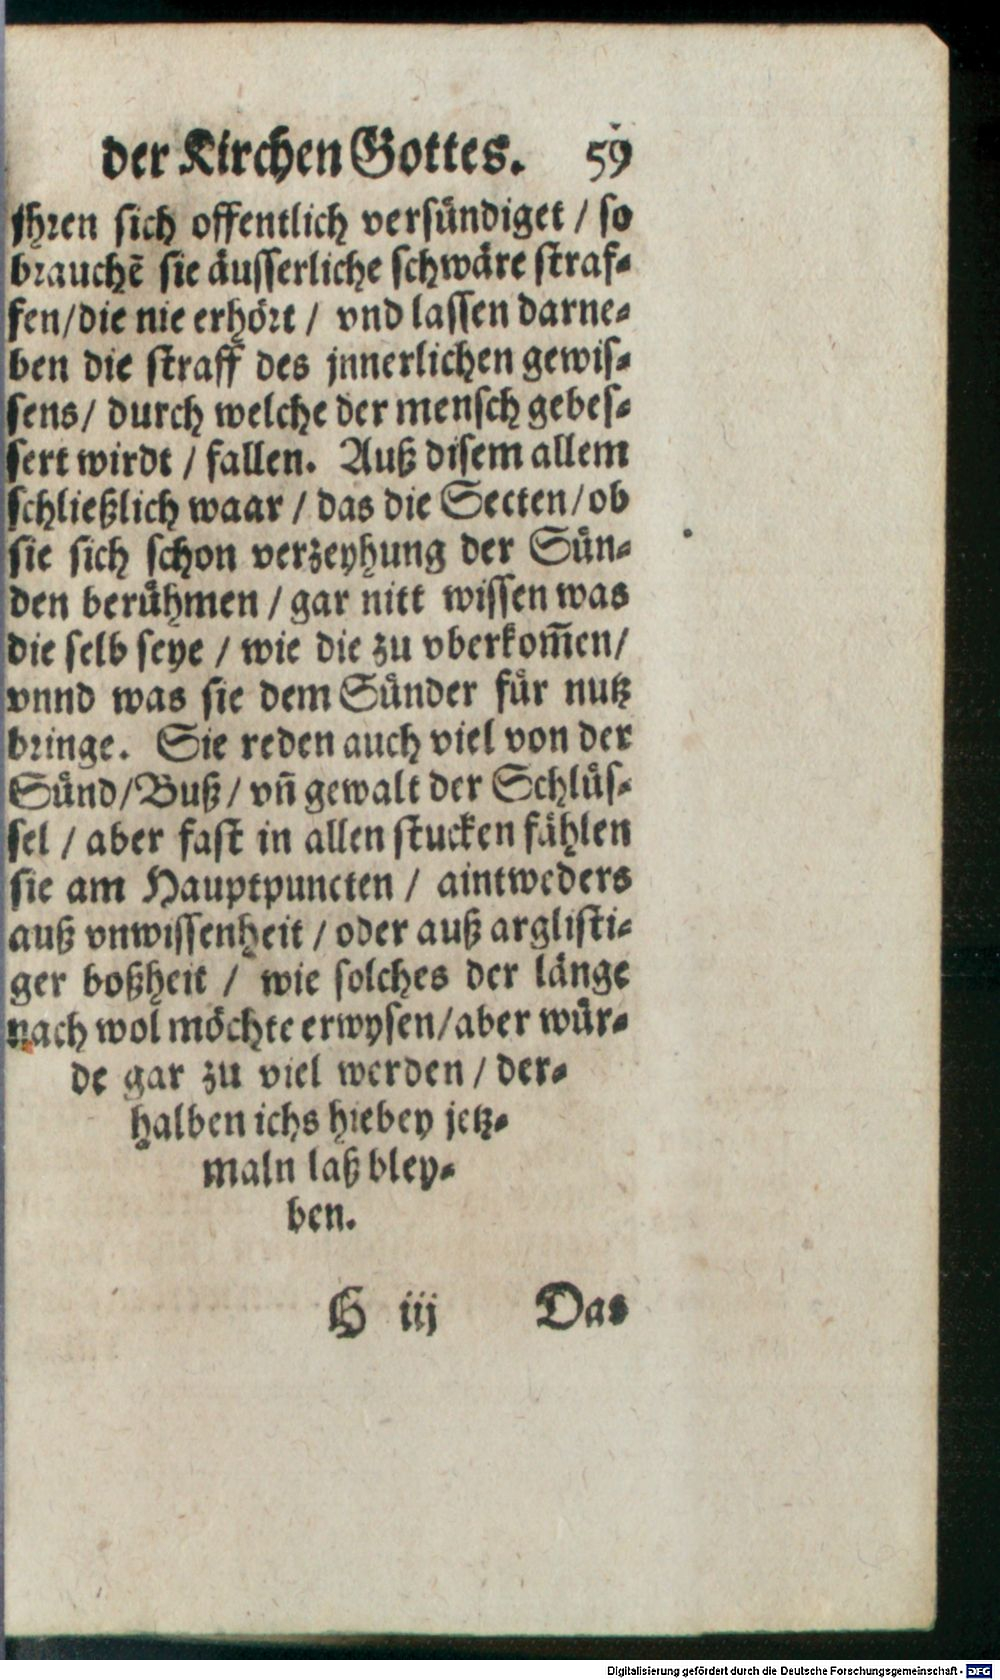 der Kirchen Gottes. 59
Ihren sich offentlich versündiget / so
brauchē sie äusserliche schwäre straf-
fen/die nie erhört / vnd lassen darne-
ben die straff des jnnerlichen gewis-
sens/ durch welche der mensch gebes-
sert wirdt / fallen. Auß disem allem
schließlich waar / das die Secten/ob
sie sich schon verzeyhung der Sün-
den berühmen / gar nitt wissen was
die selb seye / wie die zu vberkom̄en/
vnnd was sie dem Sünder für nutz
bringe. Sie reden auch viel von der
Sünd/Buß/ vn̄ gewalt der Schlüs-
sel / aber fast in allen stucken fählen
sie am Hauptpuncten / aintweders
auß vnwissenheit / oder auß arglisti-
ger boßheit / wie solches der länge
nach wol möchte erwysen/aber wür-
de gar zu viel werden / der-
halben ichs hiebey jetz-
maln laß bley-
ben.
H iij Das
Digitalisierung gefördert durch die Deutsche Forschungsgemeinschaft - DFG